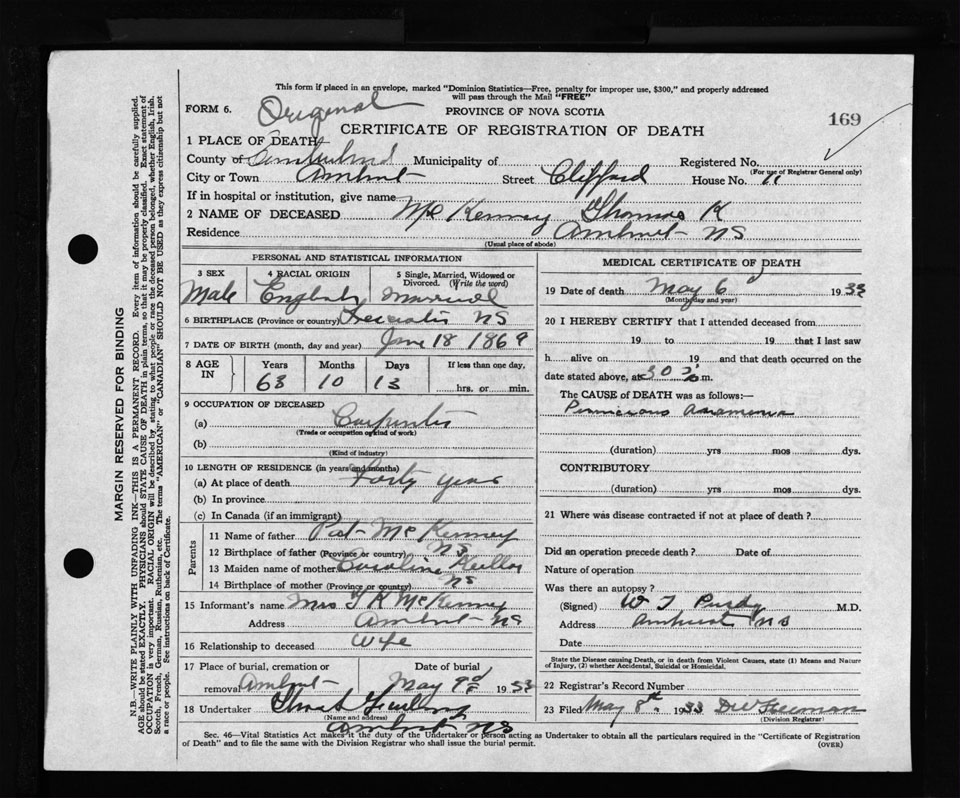 This form if placed in an envelope, marked "Dominion Statistics—Free, penalty for improper use, $300," and properly addressed
will pass through the Mail "FREE"
FORM 6. Original
PROVINCE OF NOVA SCOTIA
169
CERTIFICATE OF REGISTRATION OF DEATH
1 PLACE OF DEATH
County of Cumberland Municipality of Registered No.
(For use of Registrar General only)
City or Town Amherst Street Clifford House No. 11
If in hospital or institution, give name
2 NAME OF DECEASED McKenney Thomas K
Residence Amherst NS
(Usual place of abode)
PERSONAL AND STATISTICAL INFORMATION
3 SEX 4 RACIAL ORIGIN 5 Single, Married, Widowed or Divorced. (Write the word)
Male English Married
6 BIRTHPLACE (Province or country) NS
7 DATE OF BIRTH (month, day and year) June 18 1869
8 AGE IN Years Months Days If less than one day,
63 10 13 hrs. or min.
9 OCCUPATION OF DECEASED
(a) Carpenter
(Trade or occupation or kind of work)
(b)
(Kind of industry)
10 LENGTH OF RESIDENCE (in years and months)
(a) At place of death Forty years
(b) In province
(c) In Canada (if an immigrant)
Parents
11 Name of father Pat McKenney
12 Birthplace of father (Province or country) NS
13 Maiden name of mother Caroline
14 Birthplace of mother (Province or country) NS
15 Informant's name Mrs T K McKenney
Address Amherst NS
16 Relationship to deceased Wife
17 Place of burial, cremation or removal Amherst Date of burial May 9 1933
18 Undertaker
(Name and address)
Amherst NS
MEDICAL CERTIFICATE OF DEATH
19 Date of death May 6 1933
(Month, day and year)
20 I HEREBY CERTIFY that I attended deceased from
19 to 19 that I last saw
h alive on 19 and that death occurred on the
date stated above, at m.
The CAUSE of DEATH was as follows:—
Pernicious Anaemia
(duration) yrs mos dys.
CONTRIBUTORY
(duration) yrs mos dys.
21 Where was disease contracted if not at place of death?
Did an operation precede death? Date of
Nature of operation
Was there an autopsy?
(Signed) W T Purdy M.D.
Address Amherst NS
Date
State the Disease causing Death, or in death from Violent Causes, state (1) Means and Nature
of Injury, (2) whether Accidental, Suicidal or Homicidal.
22 Registrar's Record Number
23 Filed May 8th 1933
(Division Registrar)
Sec. 46—Vital Statistics Act makes it the duty of the Undertaker or person acting as Undertaker to obtain all the particulars required in the "Certificate of Registration
of Death" and to file the same with the Division Registrar who shall issue the burial permit.
(OVER)
MARGIN RESERVED FOR BINDING
N.B.—WRITE PLAINLY WITH UNFADING INK—THIS IS A PERMANENT RECORD. Every item of information should be carefully supplied.
AGE should be stated EXACTLY. PHYSICIANS should STATE CAUSE OF DEATH in plain terms, so that it may be properly classified. Exact statement of
OCCUPATION is very important. RACIAL ORIGIN will be described by stating to what people or race the deceased person belonged, whether English, Irish,
Scotch, French, German, Russian, Ruthenian, etc. The terms "AMERICAN" or "CANADIAN" SHOULD NOT BE USED as they express citizenship but not
a race or people. See instructions on back of Certificate.